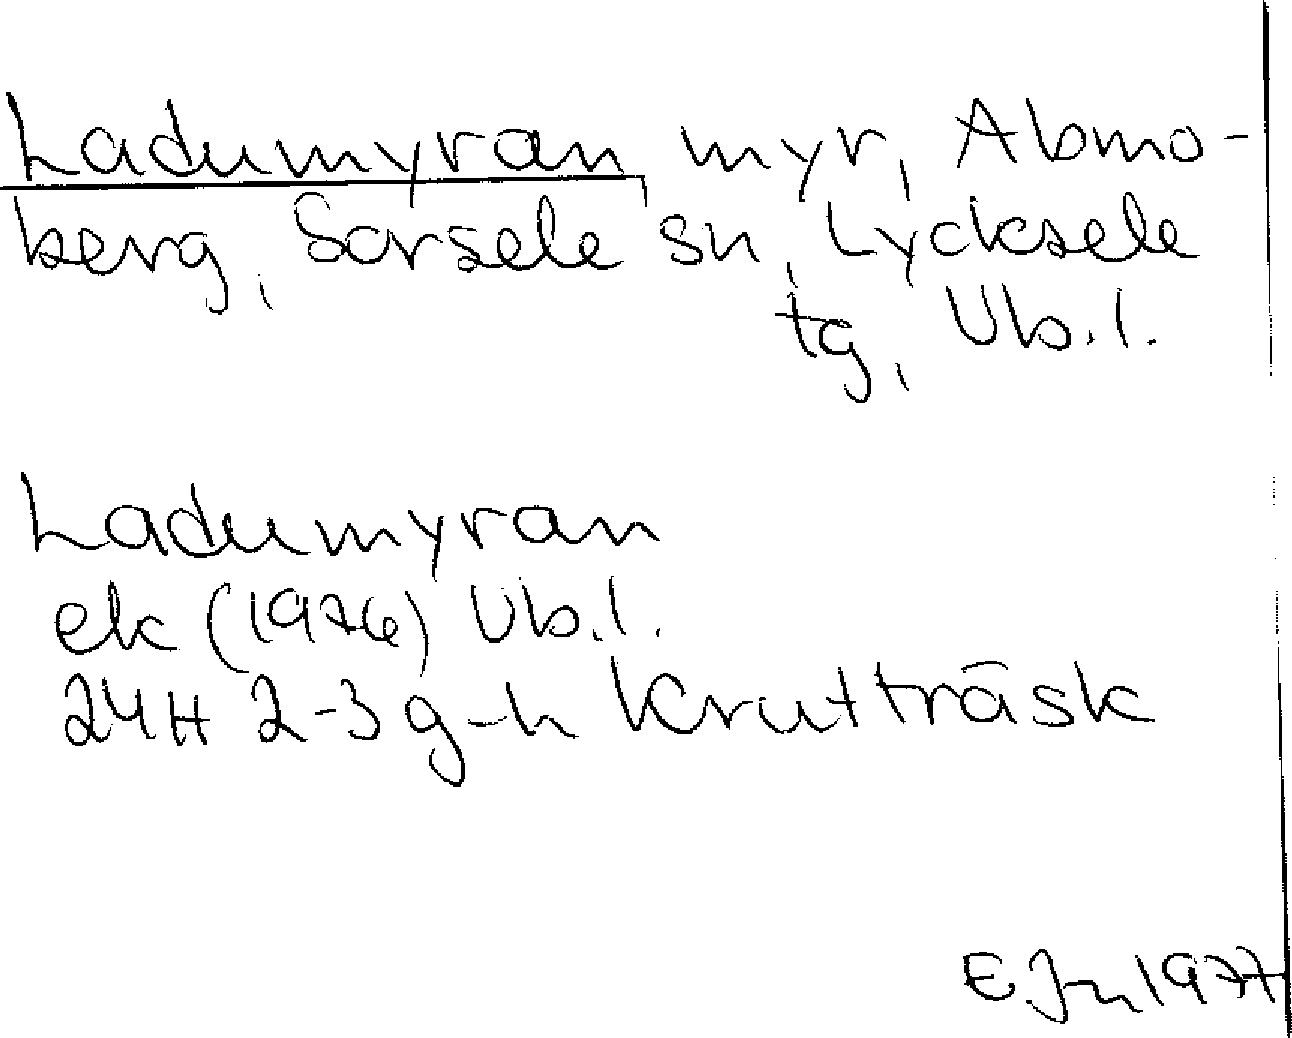 Ladumyran, myr, Abmo-
berg, Sorsele sn, Lycksele
tg, Vb.l.
Ladumyran
ek (1976) Vb.l.
24H 2-3 g-h Krutträsk
E. Jn 1977